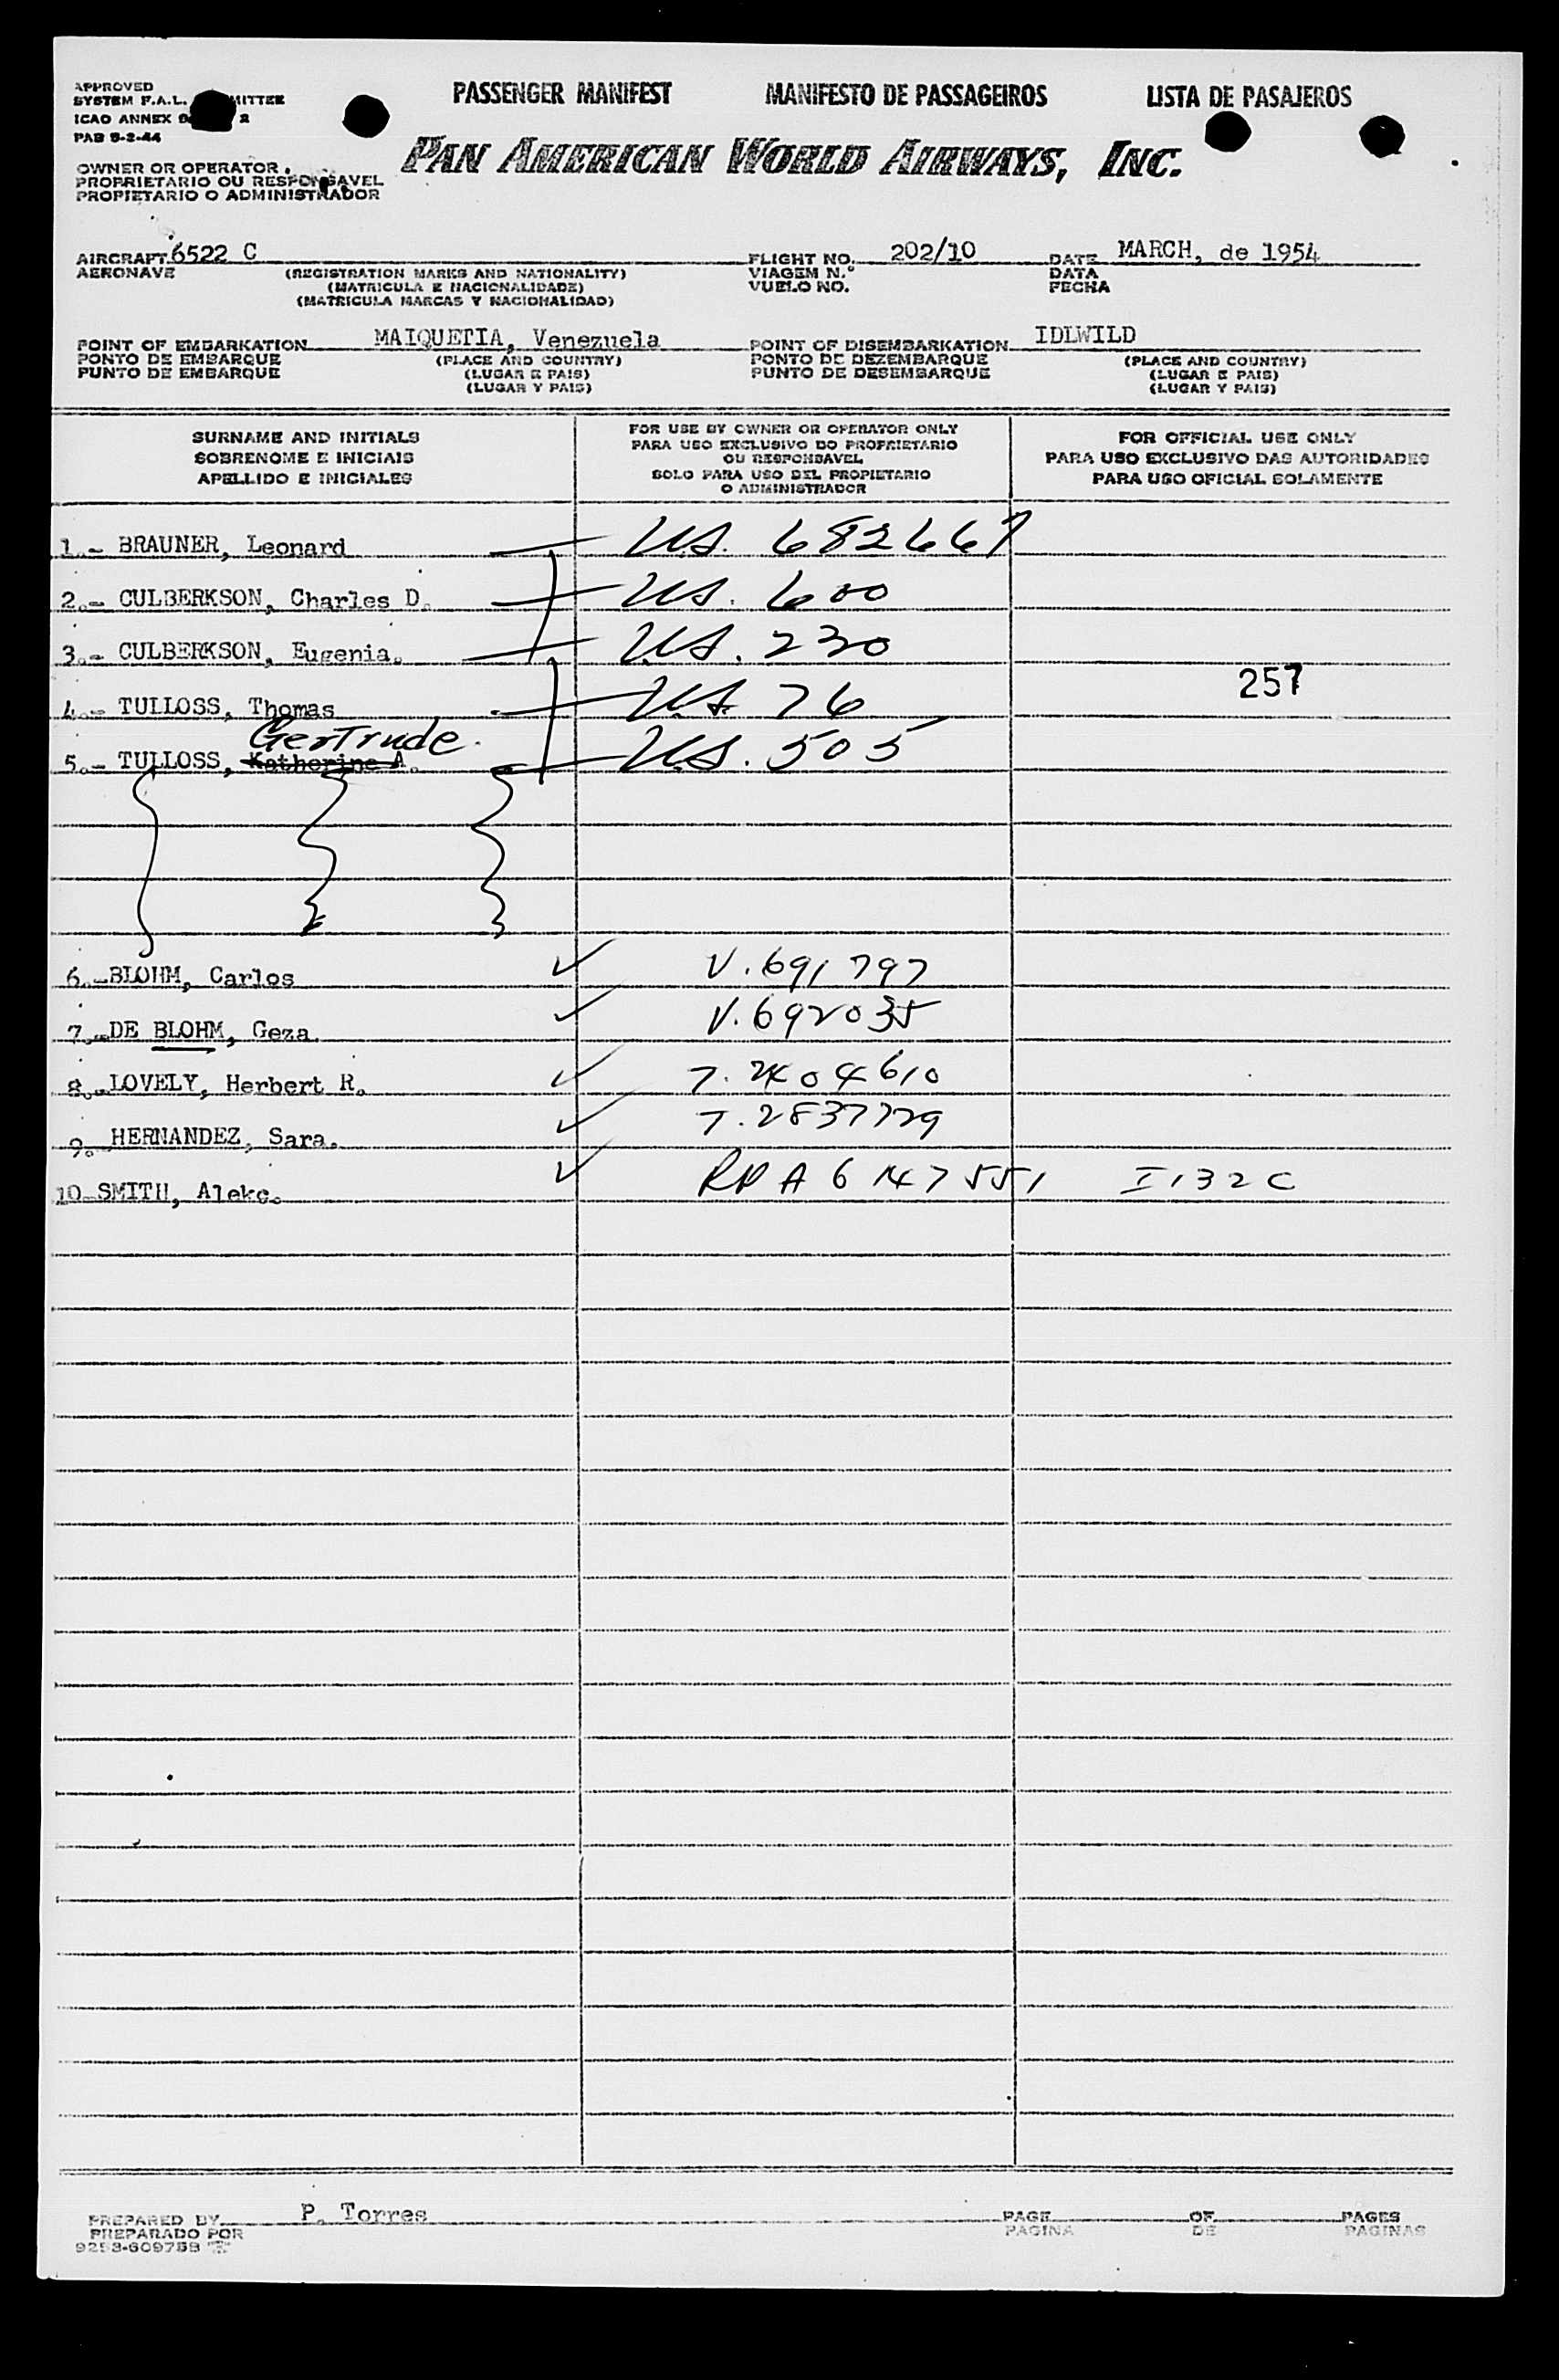 APPROVED
SYSTEM F.A.L. MITTEE
ICAO ANNEX 9 2
PAB 9-2-44
PASSENGER MANIFEST MANIFESTO DE PASSAGEIROS LISTA DE PASAJEROS
PAN AMERICAN WORLD AIRWAYS, INC.
OWNER OR OPERATOR
PROPRIETARIO OU RESPONSAVEL
PROPIETARIO O ADMINISTRADOR
AIRCRAFT 6522 C FLIGHT NO. 202/10 DATE MARCH, de 1954
AERONAVE (REGISTRATION MARKS AND NATIONALITY) VIAGEM N.º DATA
(MATRICULA E NACIONALIDADE) VUELO NO. FECHA
(MATRICULA MARCAS Y NACIONALIDAD)
POINT OF EMBARKATION MAIQUETIA, Venezuela POINT OF DISEMBARKATION IDLWILD
PONTO DE EMBARQUE (PLACE AND COUNTRY) PONTO DE DEZEMBARQUE (PLACE AND COUNTRY)
PUNTO DE EMBARQUE (LUGAR E PAIS) PUNTO DE DESEMBARQUE (LUGAR E PAIS)
(LUGAR Y PAIS) (LUGAR Y PAIS)
SURNAME AND INITIALS
SOBRENOME E INICIAIS
APELLIDO E INICIALES
FOR USE BY OWNER OR OPERATOR ONLY
PARA USO EXCLUSIVO DO PROPRIETARIO
OU RESPONSAVEL
SOLO PARA USO DEL PROPIETARIO
O ADMINISTRADOR
FOR OFFICIAL USE ONLY
PARA USO EXCLUSIVO DAS AUTORIDADES
PARA USO OFICIAL SOLAMENTE
1.- BRAUNER, Leonard U.S. 682667
2.- CULBERKSON, Charles D. U.S. 600
3.- CULBERKSON, Eugenia. U.S. 230
257
4.- TULLOSS, Thomas U.S. 76
Gertrude.
5.- TULLOSS, Katherine A. U.S. 505
6.-BLOHM, Carlos V. 691797
7.-DE BLOHM, Geza V. 692035
8.-LOVELY, Herbert R. T. 2404610
9. HERNANDEZ, Sara. T. 2837729
10-SMITH, Aleke. A6147551 I132C
PREPARED BY P. Torres PAGE OF PAGES
PREPARADO POR PAGINA DE PAGINAS